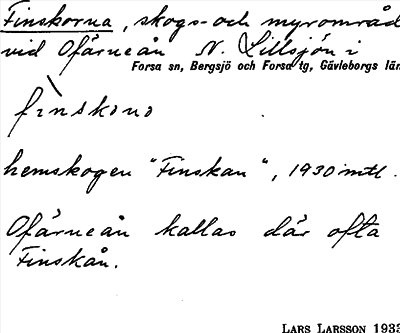 Finskorna, skogs- och myrområd
vid Ofärneån N. Lillsjön i
Forsa sn, Bergsjö och Forsa tg, Gävleborgs län
fı̀nskǝnɒ
hemskogen "Finskan", 1930 mtl.
Ofärneån kallas där ofta
Finskån.
LARS LARSSON 1933